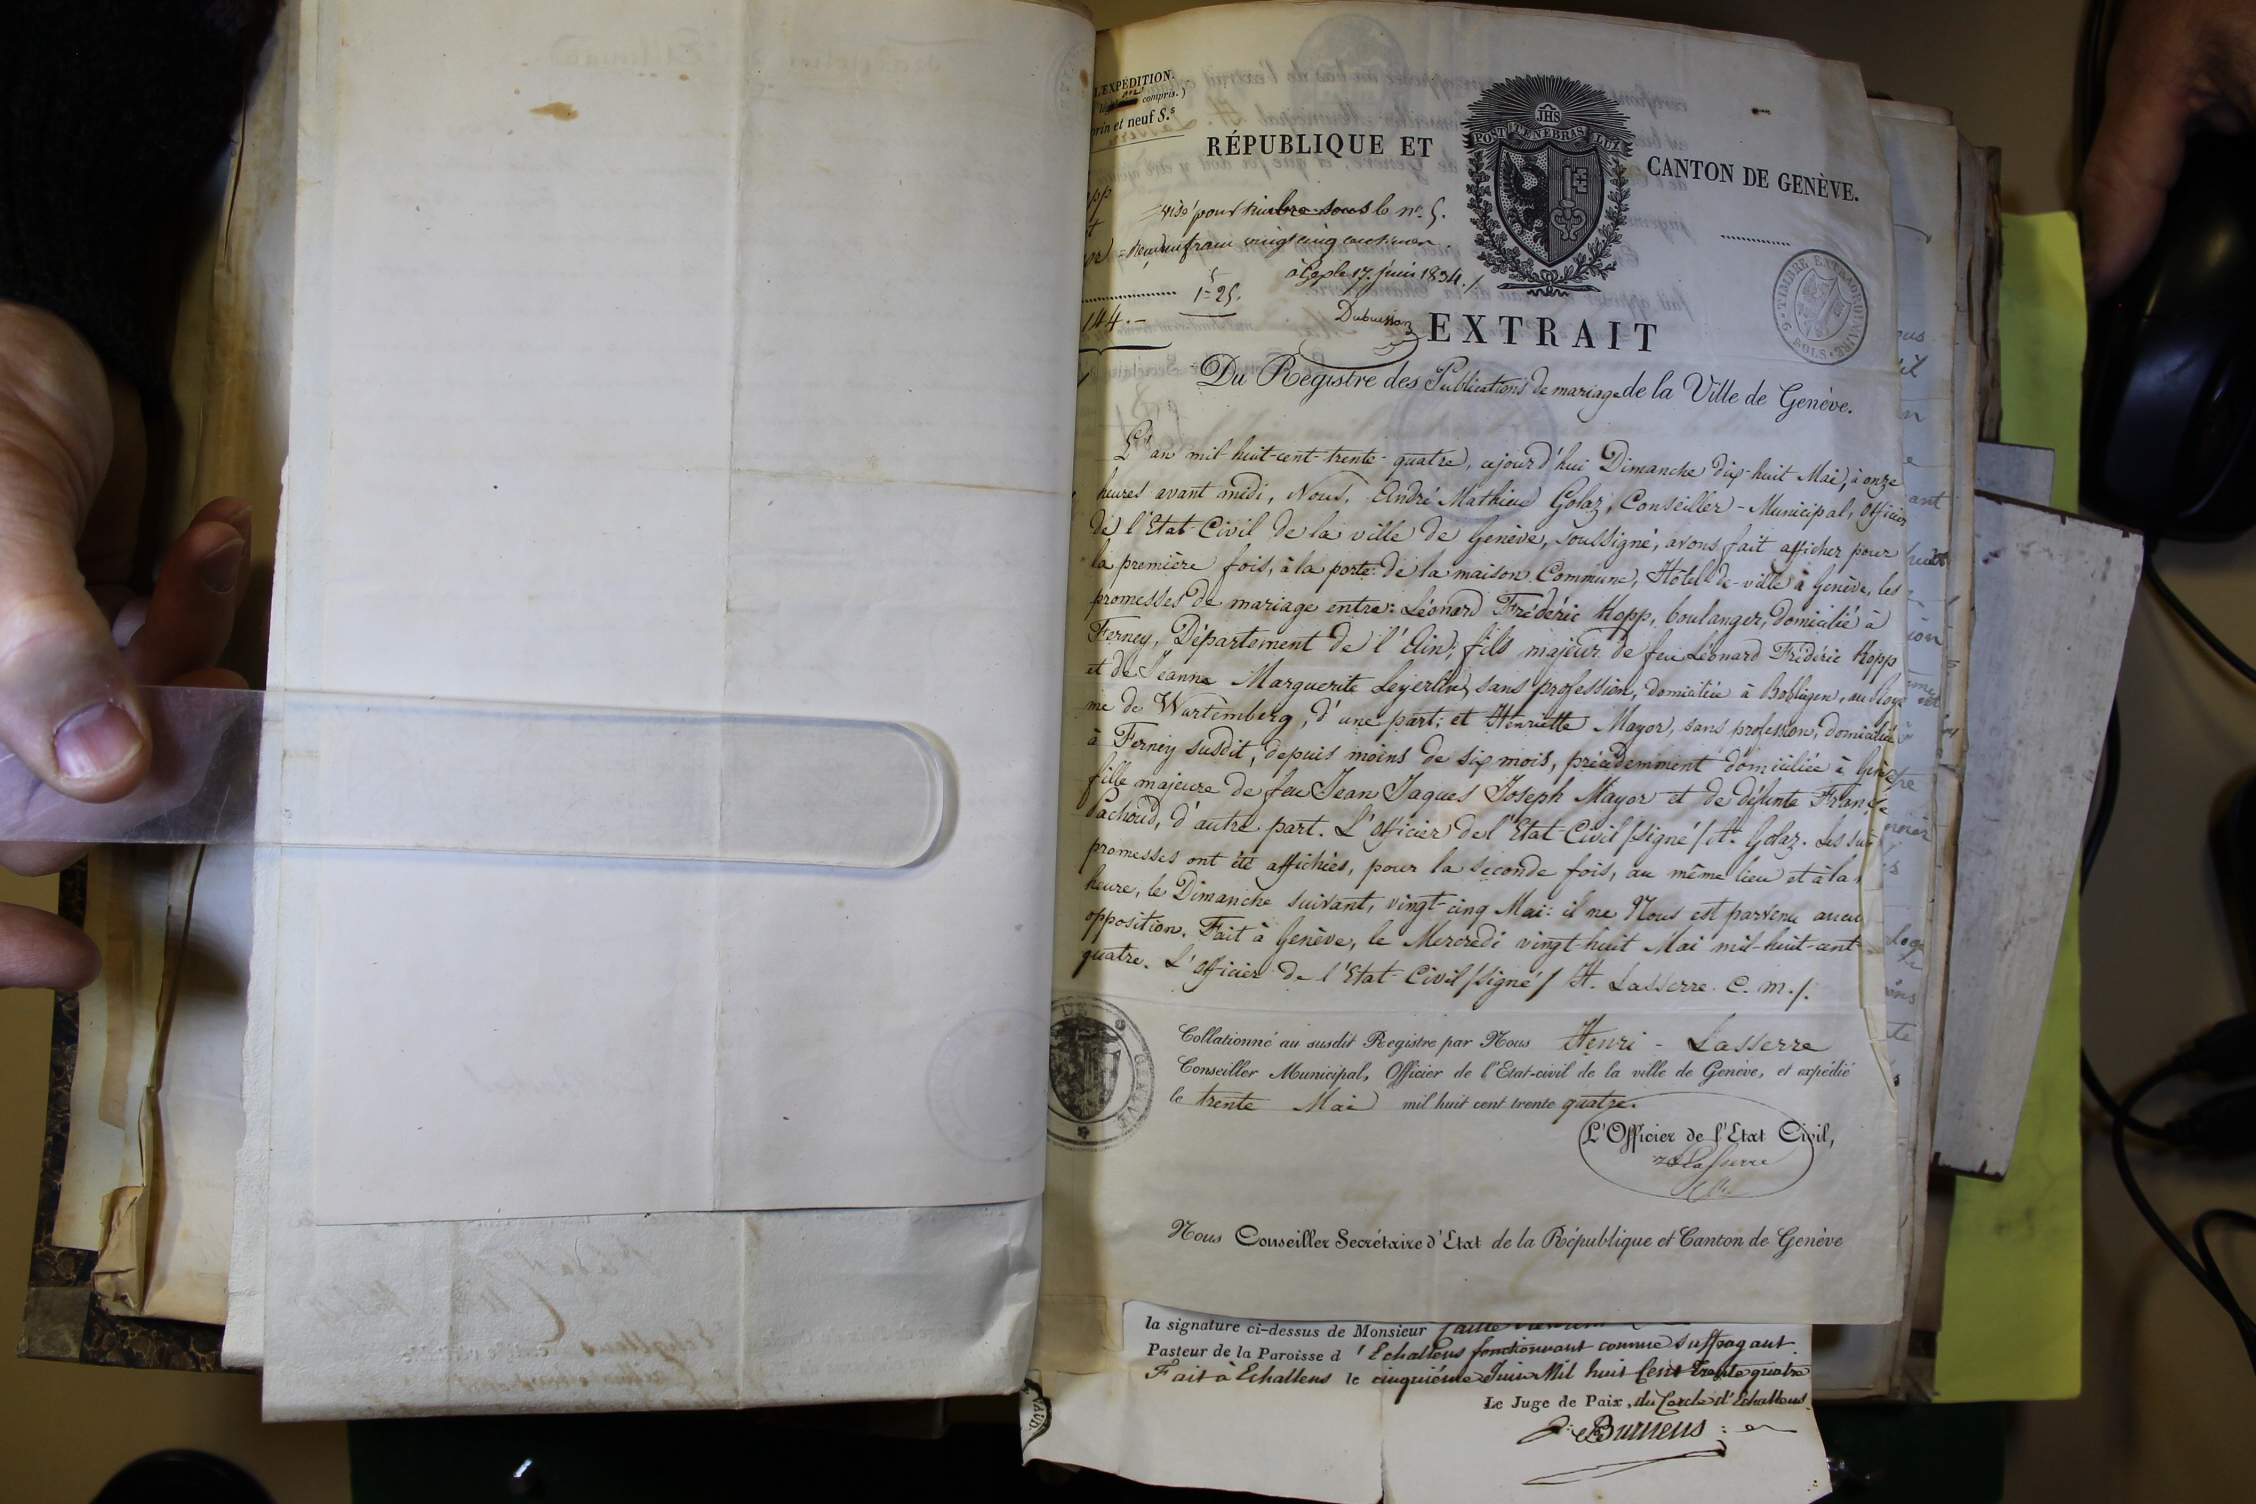 L'EXPÉDITION.
compris.)
et neuf S.s
JHS
POST TENEBRAS LUX
RÉPUBLIQUE ET
CANTON DE GENÈVE.
visé pour timbre sous le no. 5.
franc vingt cinq centimes
à Gex le 17. juin 1834./.
1=25.
144.-
Dubuisson
TIMBRE EXTRAORDINAIRE
6 SOLS
EXTRAIT
Du Registre des Publications de mariage de la Ville de Genève.
L'an mil-huit-cent-trente-quatre, cejourd'hui Dimanche dix-huit Mai, à onze
heures avant midi, Nous, André Mathieu Golaz, Conseiller-Municipal, Officier
de l'Etat-Civil de la ville de Genève, soussigné, avons fait afficher pour
la première fois, à la porte de la maison Commune, Hôtel-de-ville à Genève, les
promesses de mariage entre: Léonard Frédéric Kopp, boulanger, domicilié à
Ferney, Département de l'Ain, fils majeur de feu Léonard Frédéric Kopp
et de Jeanne Marguerite Leyerlin, sans profession, domiciliée à Bobligen, au Royau
me de Wurtemberg, d'une part; et Henriette Mayor, sans profession, domiciliée
à Ferney susdit, depuis moins de six mois, précédemment domiciliée à Genève
fille majeure de feu Jean Jaques Joseph Mayor et de défunte Françse
Pachoud, d'autre part. L'officier de l'Etat-Civil /signé/ At. Golaz. Les sus
promesses ont été affichées, pour la seconde fois, au même lieu et à la
heure, le Dimanche suivant, vingt-cinq Mai: il ne Nous est parvenu aucu
opposition. Fait à Genève, le Mercredi vingt-huit Mai mil-huit-cent
quatre. L'officier de l'Etat-Civil /signé/ H. Lasserre. C. m./.
GENÈVE
Collationné au susdit Registre par Nous Henri - Lasserre
Conseiller Municipal, Officier de l'Etat-civil de la ville de Genève, et expédié
le trente Mai mil huit cent trente quatre.
L'Officier de l'Etat Civil,
Lasserre
Nous Conseiller Secrétaire d'Etat de la République et Canton de Genève
la signature ci-dessus de Monsieur
Pasteur de la Paroisse d'Echallens fonctionnant comme suffragant.
Fait à Echallens le cinquième Juin Mil huit Cent Trente quatre
Le Juge de Paix, du Cercle d'Echallens.
VAUD.
Burnens